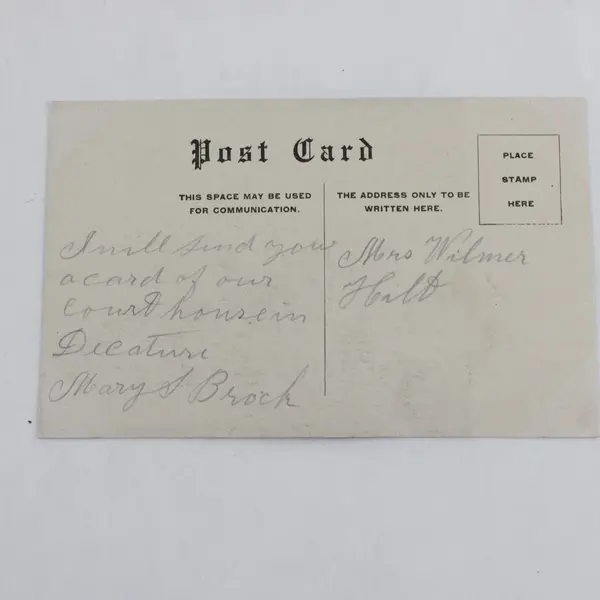 Post Card
PLACE
STAMP
HERE
THIS SPACE MAY BE USED
FOR COMMUNICATION.
THE ADDRESS ONLY TO BE
WRITTEN HERE.
I will send you
a card of our
court house in
Decature
Mary S Brock
Mrs Wilmer
Hilt